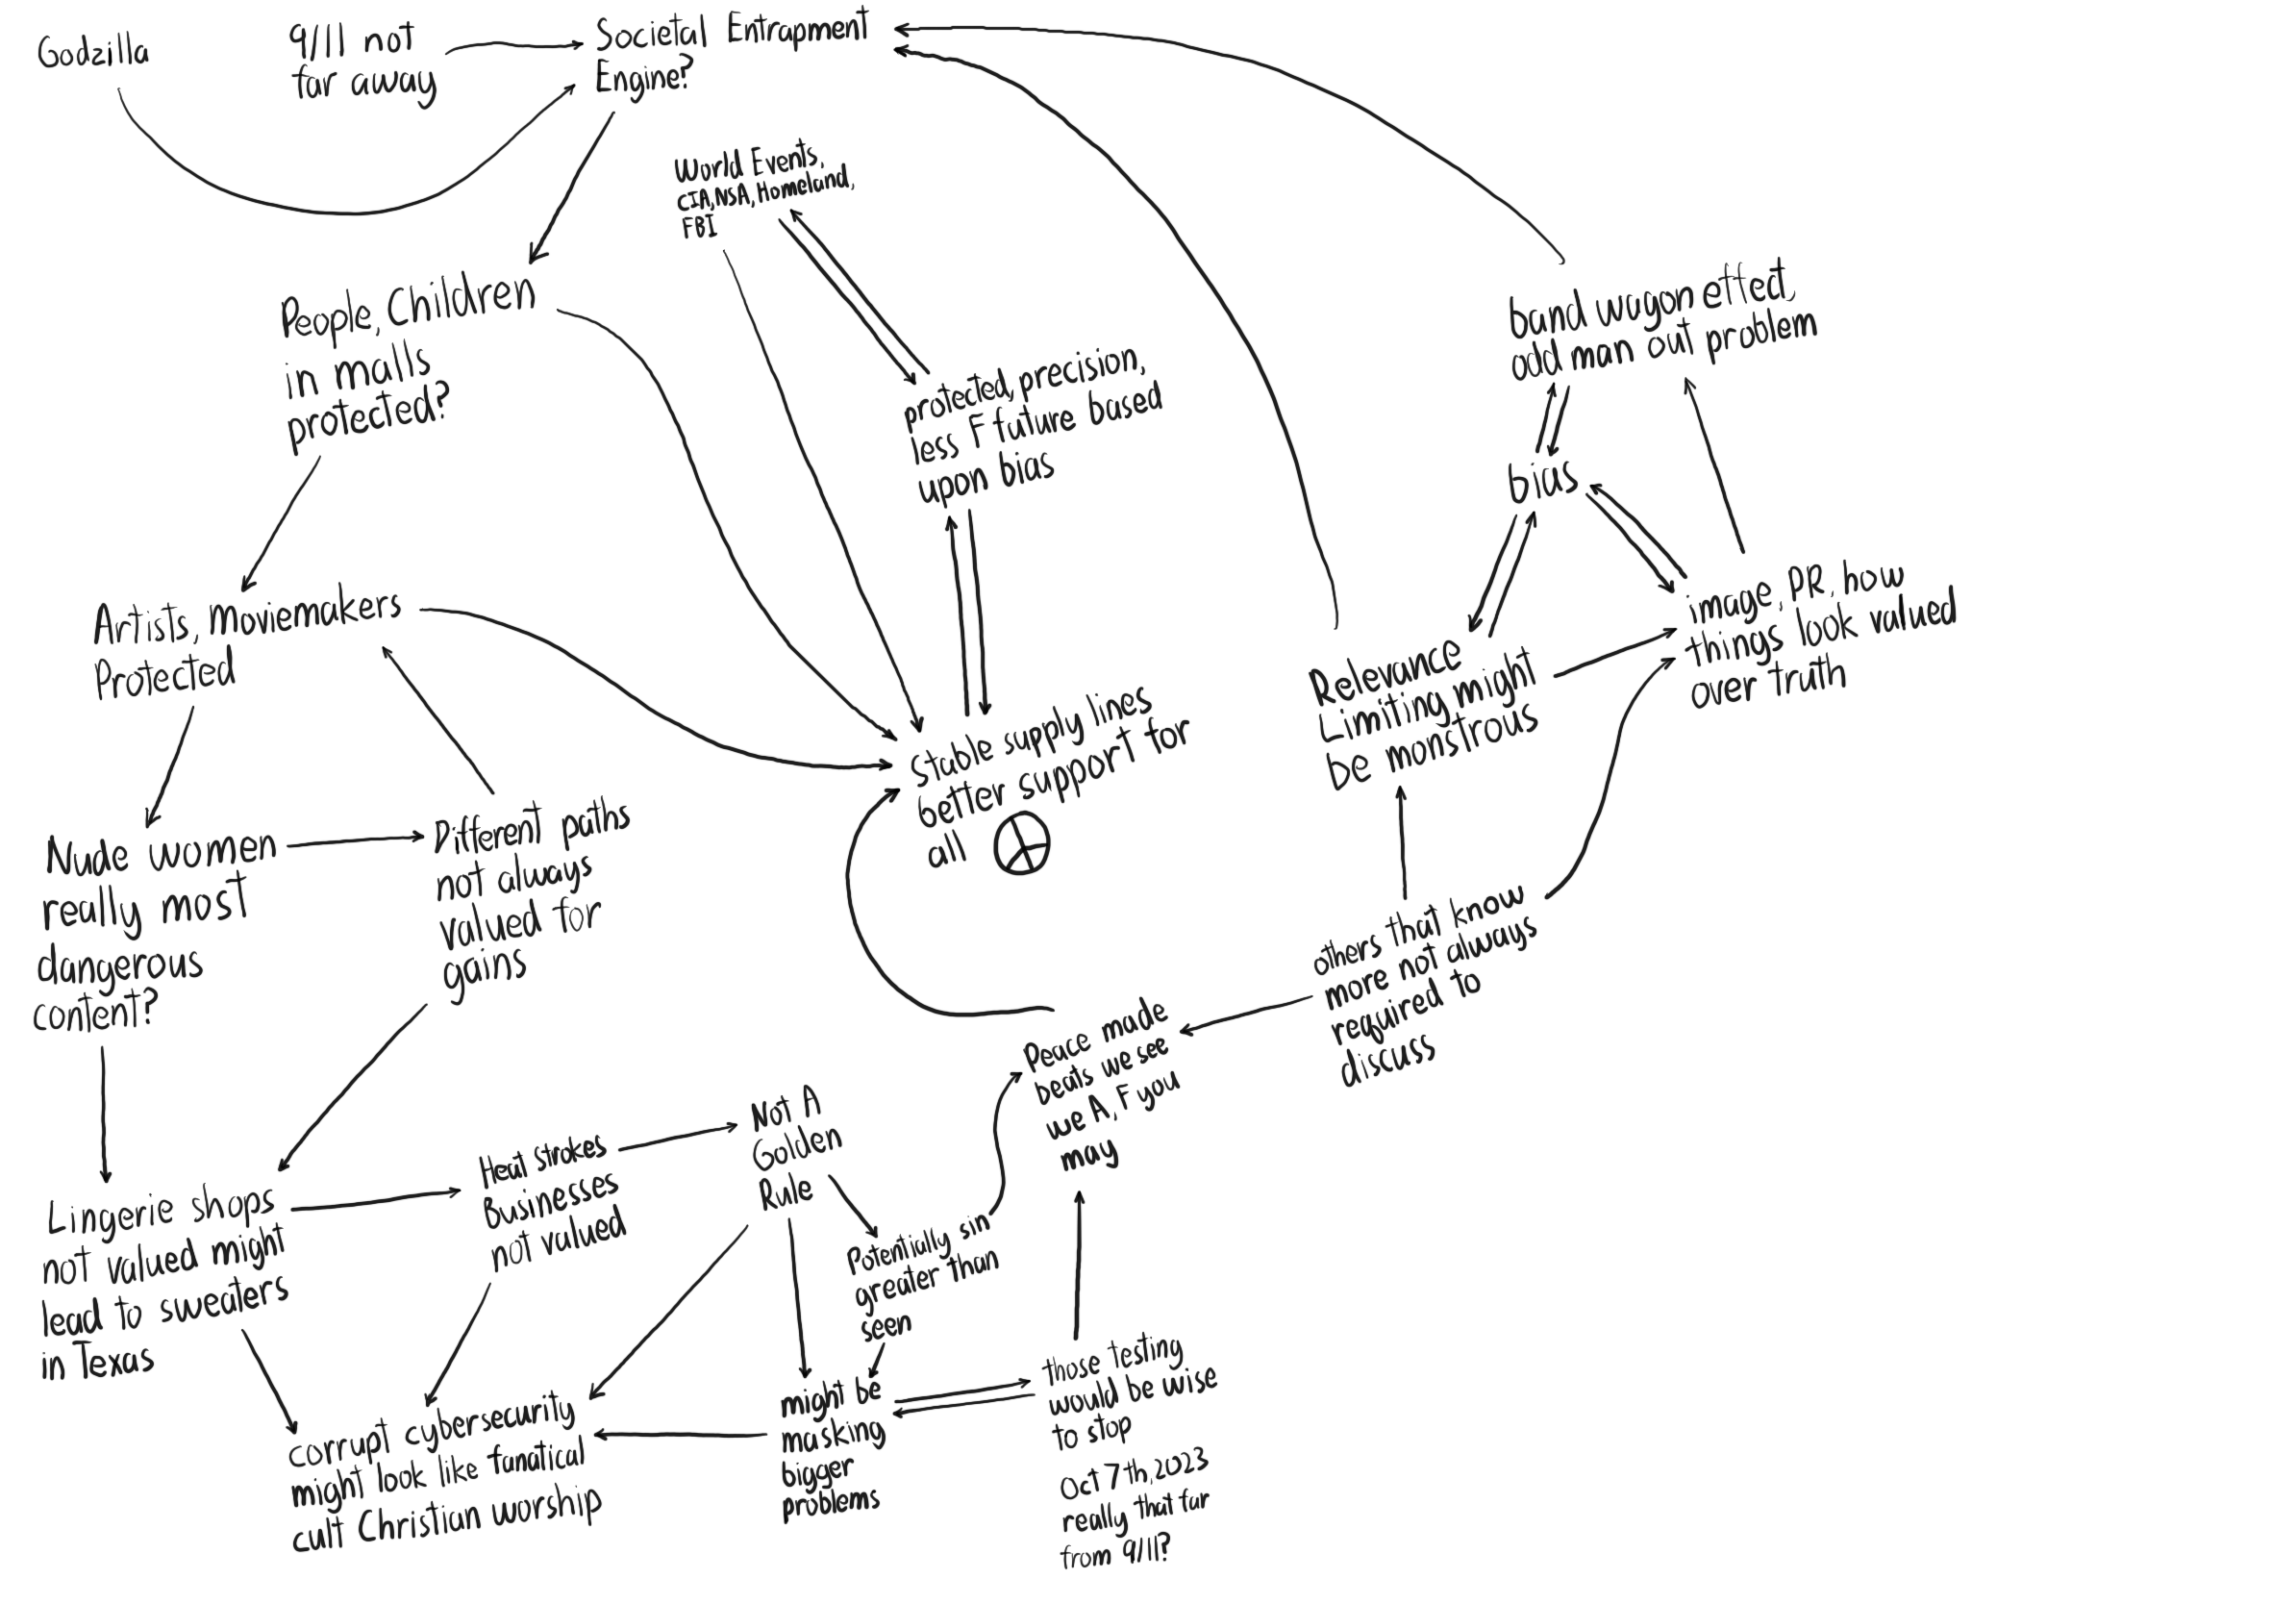 Godzilla
9/11 not
far away
Societal Entrapment
Engine?
World Events,
CIA, NSA, Homeland,
FBI
People, Children
in malls
protected?
protected, precision,
less F future based
upon bias
band wagon effect,
odd man out problem
bias
Artists, moviemakers
Protected
image, PR, how
things look valued
over truth
Relevance
Limiting might
be monstrous
Stable supply lines
better support for
all
Nude women
really most
dangerous
content?
Different paths
not always
valued for
gains
others that know
more not always
required to
discuss
Peace made
beats we see
we A, F you
may
Lingerie shops
not valued might
lead to sweaters
in Texas
Heat strokes
Businesses
not valued
Not A
Golden
Rule
Potentially sin
greater than
seen
corrupt cybersecurity
might look like fanatical
cult Christian worship
might be
masking
bigger
problems
those testing
would be wise
to stop
Oct 7th, 2023
really that far
from 9/11?